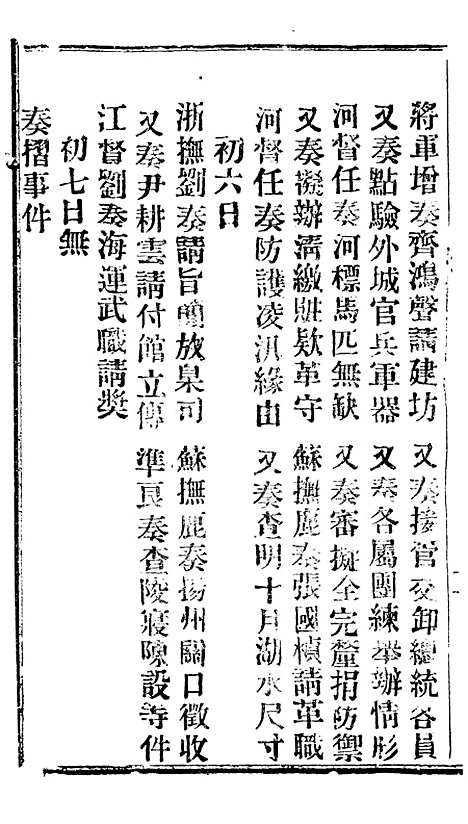 將軍增奏齊鴻聲請建坊　又奏接管交卸總統各員
又奏點驗外城官兵軍器　又奏各屬團練舉辦情形
河督任奏河標馬匹無缺　又奏審擬全完釐捐防禦
又奏擬辦清繳賍欵革守　蘇撫鹿奏張國楨請革職
河督任奏防護凌汛緣由　又奏查明十月湖水尺寸
初六日
浙撫劉奏請旨簡放臬司　蘇撫鹿奏揚州關口徵收
又奏尹耕雲請付館立傳　準良奏查陵寢陳設等件
江督劉奏海運武職請獎
初七日無
奏摺事件